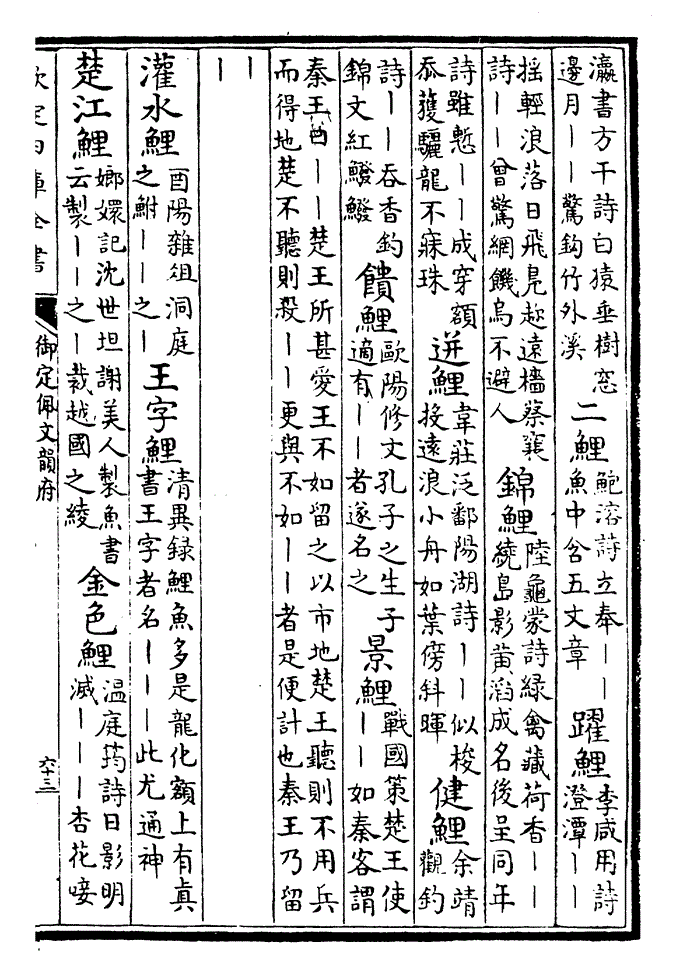 瀛書方干詩白猿垂樹窓邊月丨丨驚鈎竹外溪 二鯉 鮑溶詩立奉丨丨魚中含五文章 躍鯉 李咸用詩澄潭丨丨
搖輕浪落日飛鳧趂遠檣蔡襄詩丨丨曾驚網饑烏不避人 錦鯉 陸龜蒙詩綠禽藏荷香丨丨繞島影黄滔成名後呈同年
詩雖慙丨丨成穿額忝獲驪龍不寐珠 迸鯉 韋莊泛鄱陽湖詩丨丨似梭投遠浪小舟如葉傍斜暉 健鯉 余靖觀釣
詩丨丨吞香鈎錦文紅鱍鱍 饋鯉 歐陽修文孔子之生子適有丨丨者遂名之 景鯉 戰國策楚王使丨丨如秦客謂
秦王曰丨丨楚王所甚愛王不如留之以市地楚王聽則不用兵而得地楚不聽則殺丨丨更與不如丨丨者是便計也秦王乃留
丨丨
灌水鯉 酉陽雜俎洞庭之鮒丨丨之丨 王字鯉 清異録鯉魚多是龍化額上有真書王字者名丨丨丨此尤通神
楚江鯉 嫏嬛記沈世坦謝美人製魚書云製丨丨之丨裁越國之綾 金色鯉 温庭筠詩日影明滅丨丨丨杏花唼
欽定四庫全書 御定佩文韻府 六十三